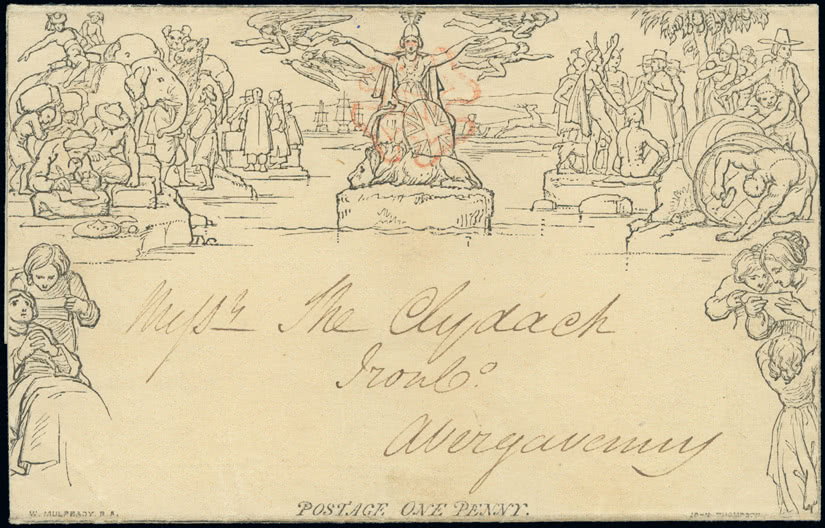 Messrs The Clydach
Iron Co.
Abergavenny
W. MULREADY. R.A.
POSTAGE ONE PENNY.
JOHN THOMPSON